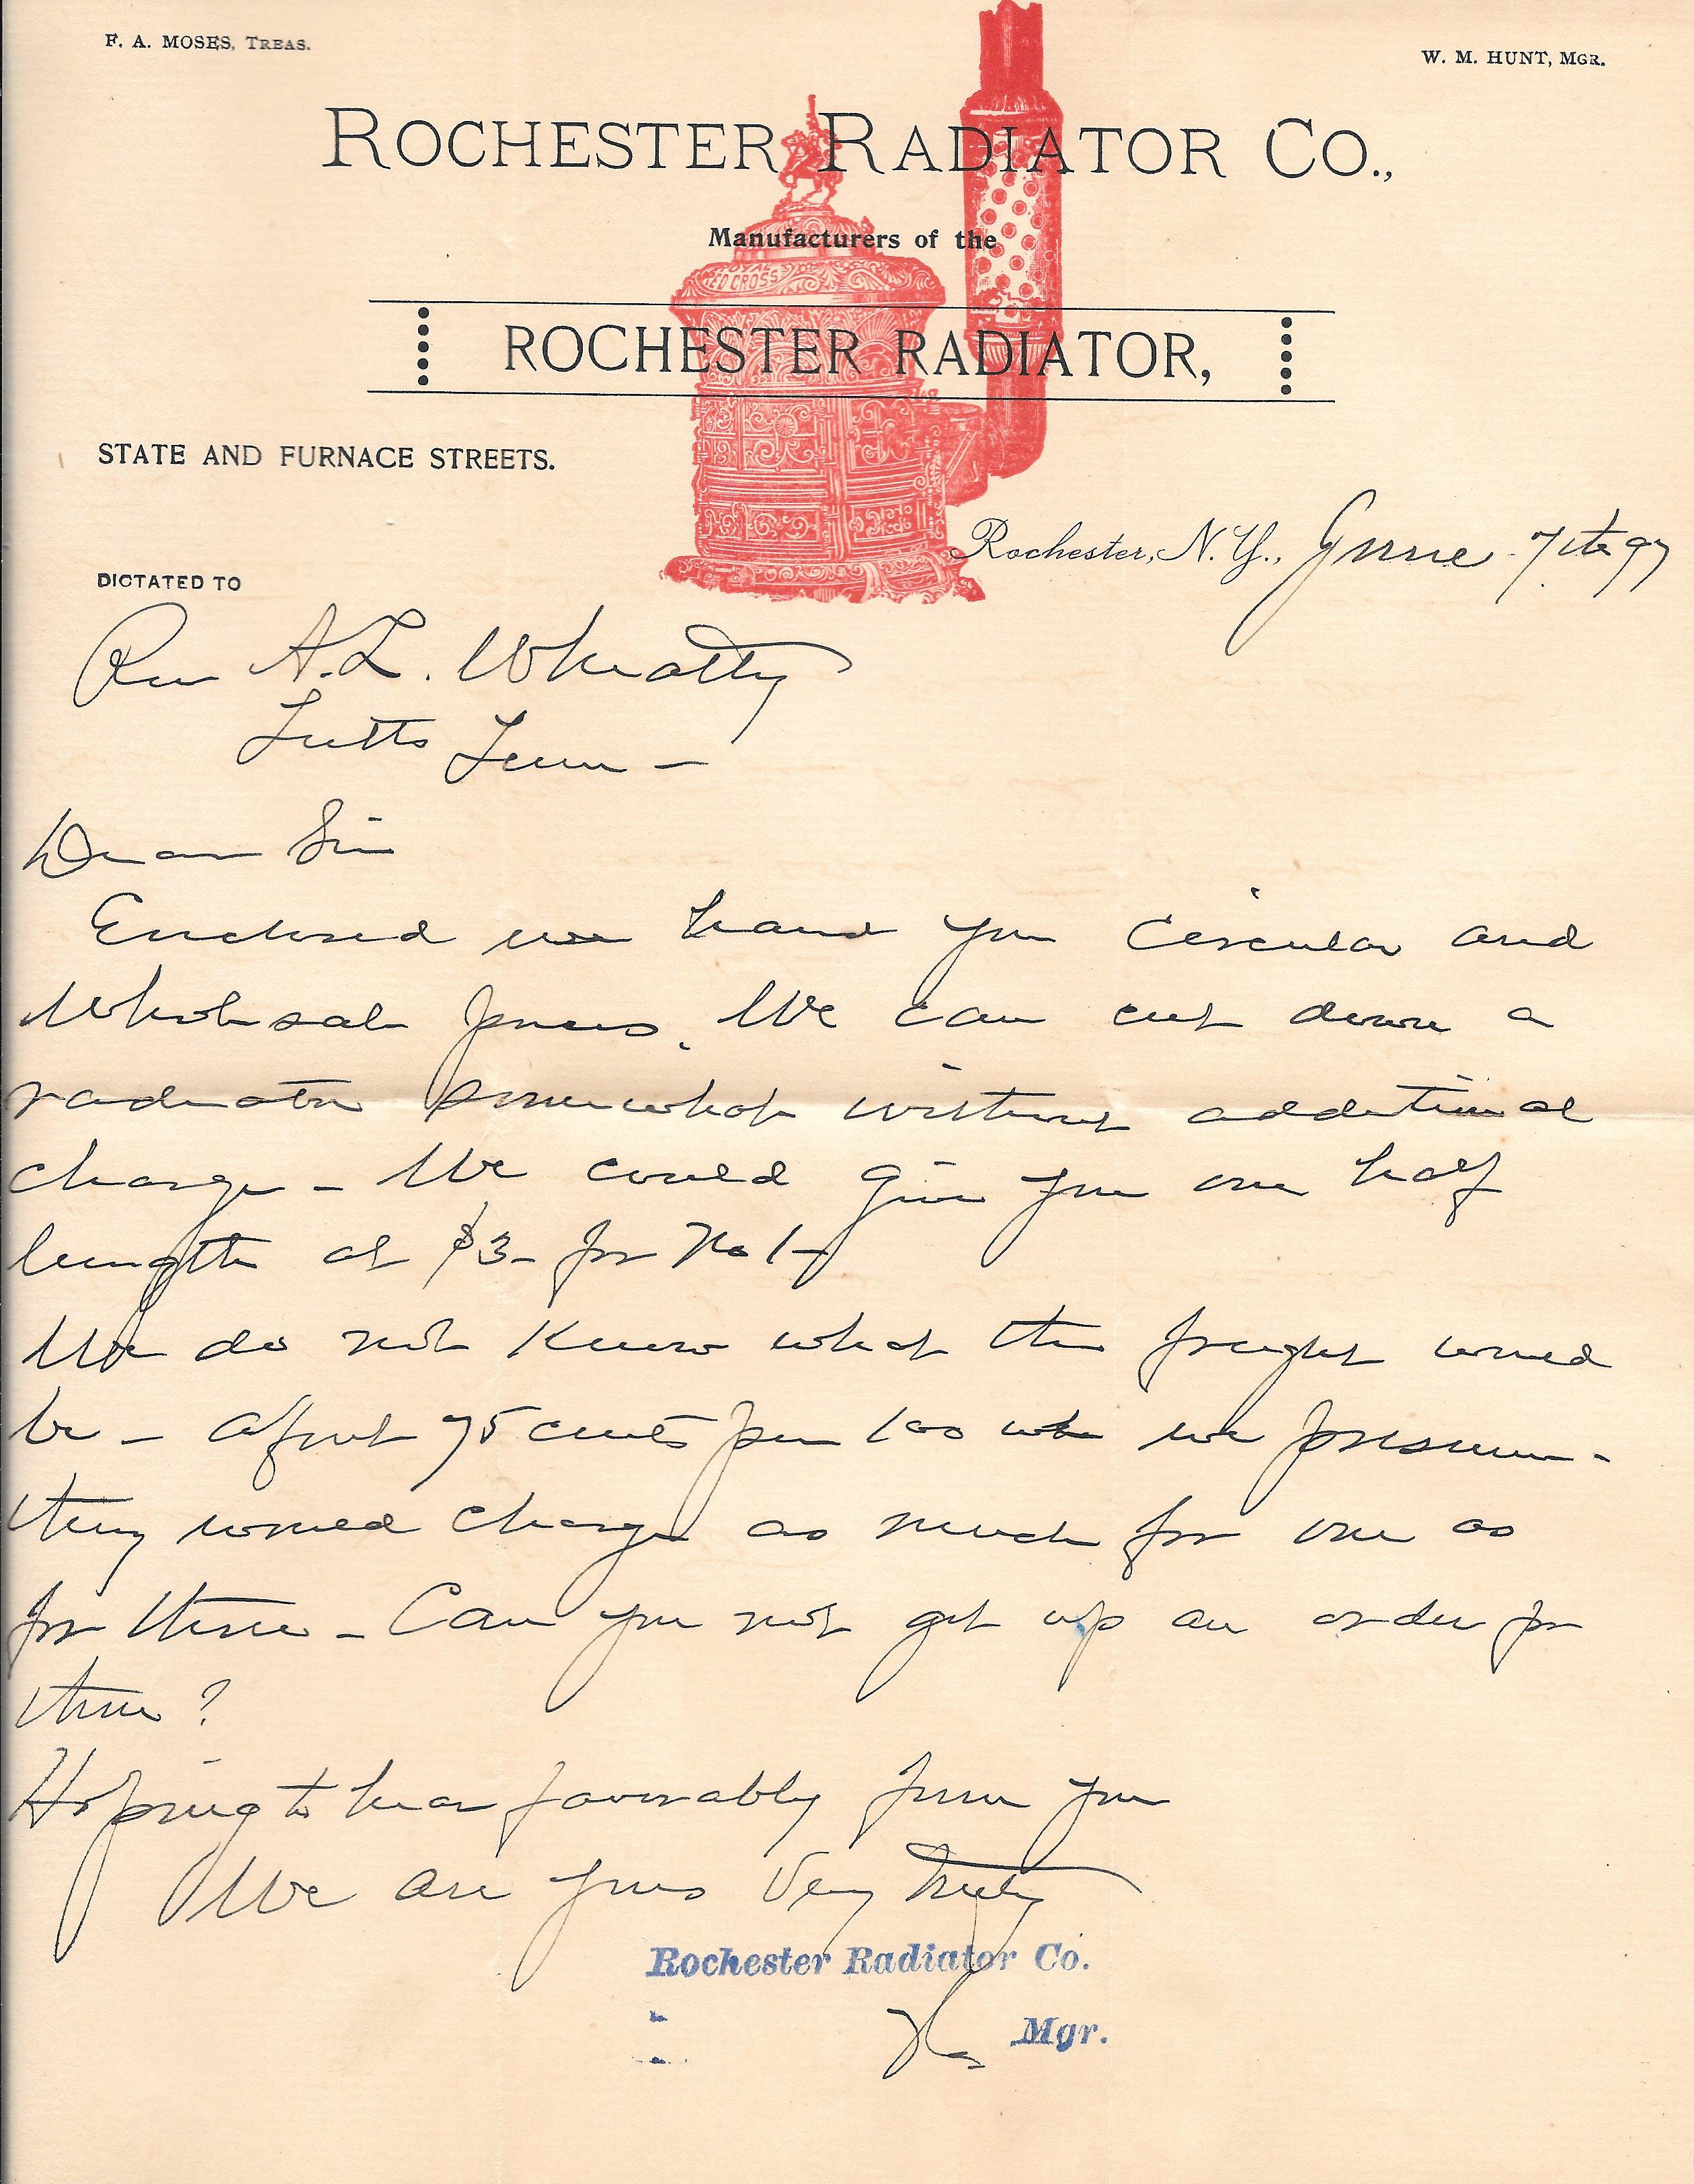 F. A. MOSES, TREAS.
W. M. HUNT, MGR.
ROCHESTER RADIATOR CO.,
Manufacturers of the
ROYAL
RED CROSS
ROCHESTER RADIATOR,
STATE AND FURNACE STREETS.
Rochester, N. Y., June 7th 97
DICTATED TO
Rev A. L. Wheatly
Lutts Tenn -
Dear Sir
Enclosed we hand you circular and
Wholesale prices. We can cut down a
radiator somewhat without additional
charge - We could give you one half
length at $3- for No 1-
We do not know what the freight would
be - about 75 cents per 100 we presume -
they would charge as much for one as
for three - Can you not get up an order for
three?
Hoping to hear favorably from you
We are yours Very truly
Rochester Radiator Co.
Mgr.